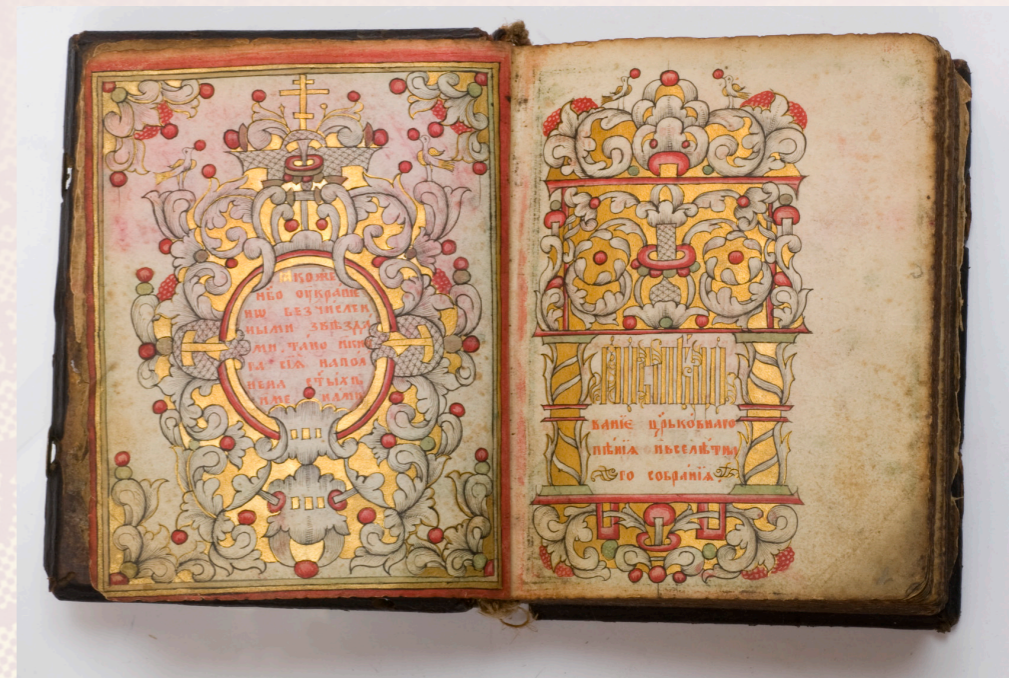 ꙗкоже
нб҃о ѹкраше
но безчислен
ными звѣзда
ми тако кни
га сїѧ напол
нена ст҃ыхъ
именами
ванїе цр҃ьковнаго
пѣнїѧ и҆ вселѣтна
го собранїѧ